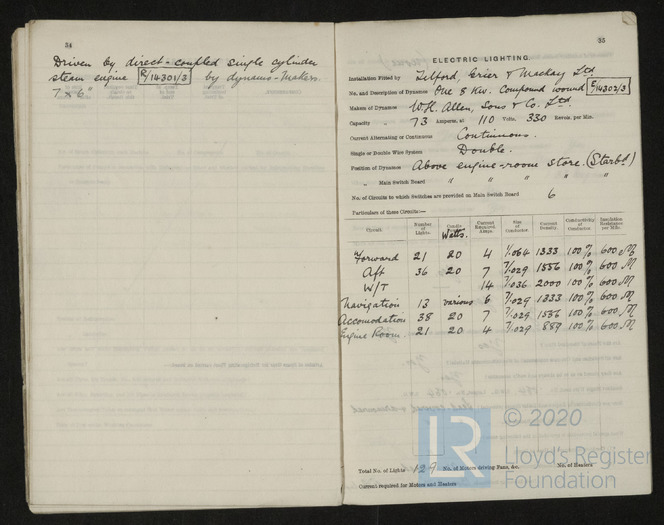 34
Driven by direct-coupled simple cylinder
steam engine E/14301/3 by dynamo-makers.
7 x 6"
35
ELECTRIC LIGHTING.
Installation Fitted by Telford, Grier & Mackay Ltd
No. and Description of Dynamos One 8 Kw. Compound wound E/14302/3
Makers of Dynamos W.H. Allen, Sons & Co. Ltd.
Capacity „ 73 Amperes, at 110 Volts, 330 Revols. per Min.
Current Alternating or Continuous Continuous.
Single or Double Wire System Double.
Position of Dynamos Above engine-room store. (Starbd)
„ Main Switch Board " " " " "
No. of Circuits to which Switches are provided on Main Switch Board 6
Particulars of these Circuits:—
Circuit. Number of Lights. Candle Watts. Current Required. Amps. Size of Conductor. Current Density. Conductivity of Conductor. Insulation Resistance per Mile.
Forward 21 20 4 1/.064 1333 100% 600 M
Aft 36 20 7 7/.029 1556 100% 600 M
W/T 14 7/.036 2000 100% 600 M
Navigation 13 various 6 7/.029 1333 100% 600 M
Accomodation 38 20 7 7/.029 1556 100% 600 M
Engine Room. 21 20 4 7/.029 889 100% 600 M
Total No. of Lights 129 No. of Motors driving Fans, &c. No. of Heaters
Current required for Motors and Heaters
LR © 2020
Lloyd's Register
Foundation